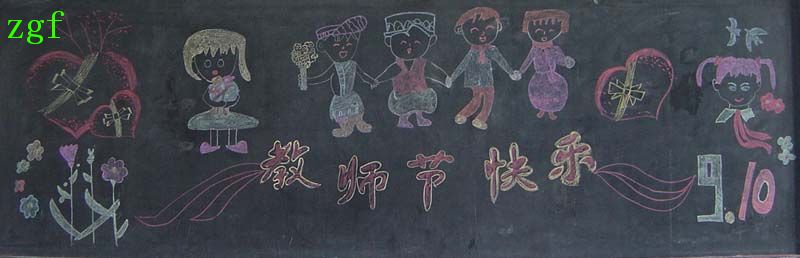 zgf
教师节快乐
9.10